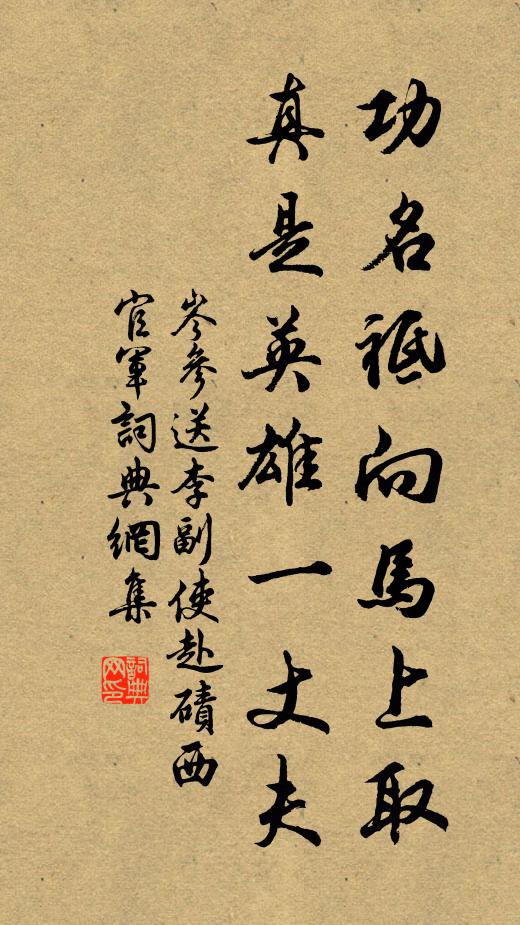 功名祗向馬上取
真是英雄一丈夫
岑參送李副使赴磧西
官軍詞典網集
詞典
网印